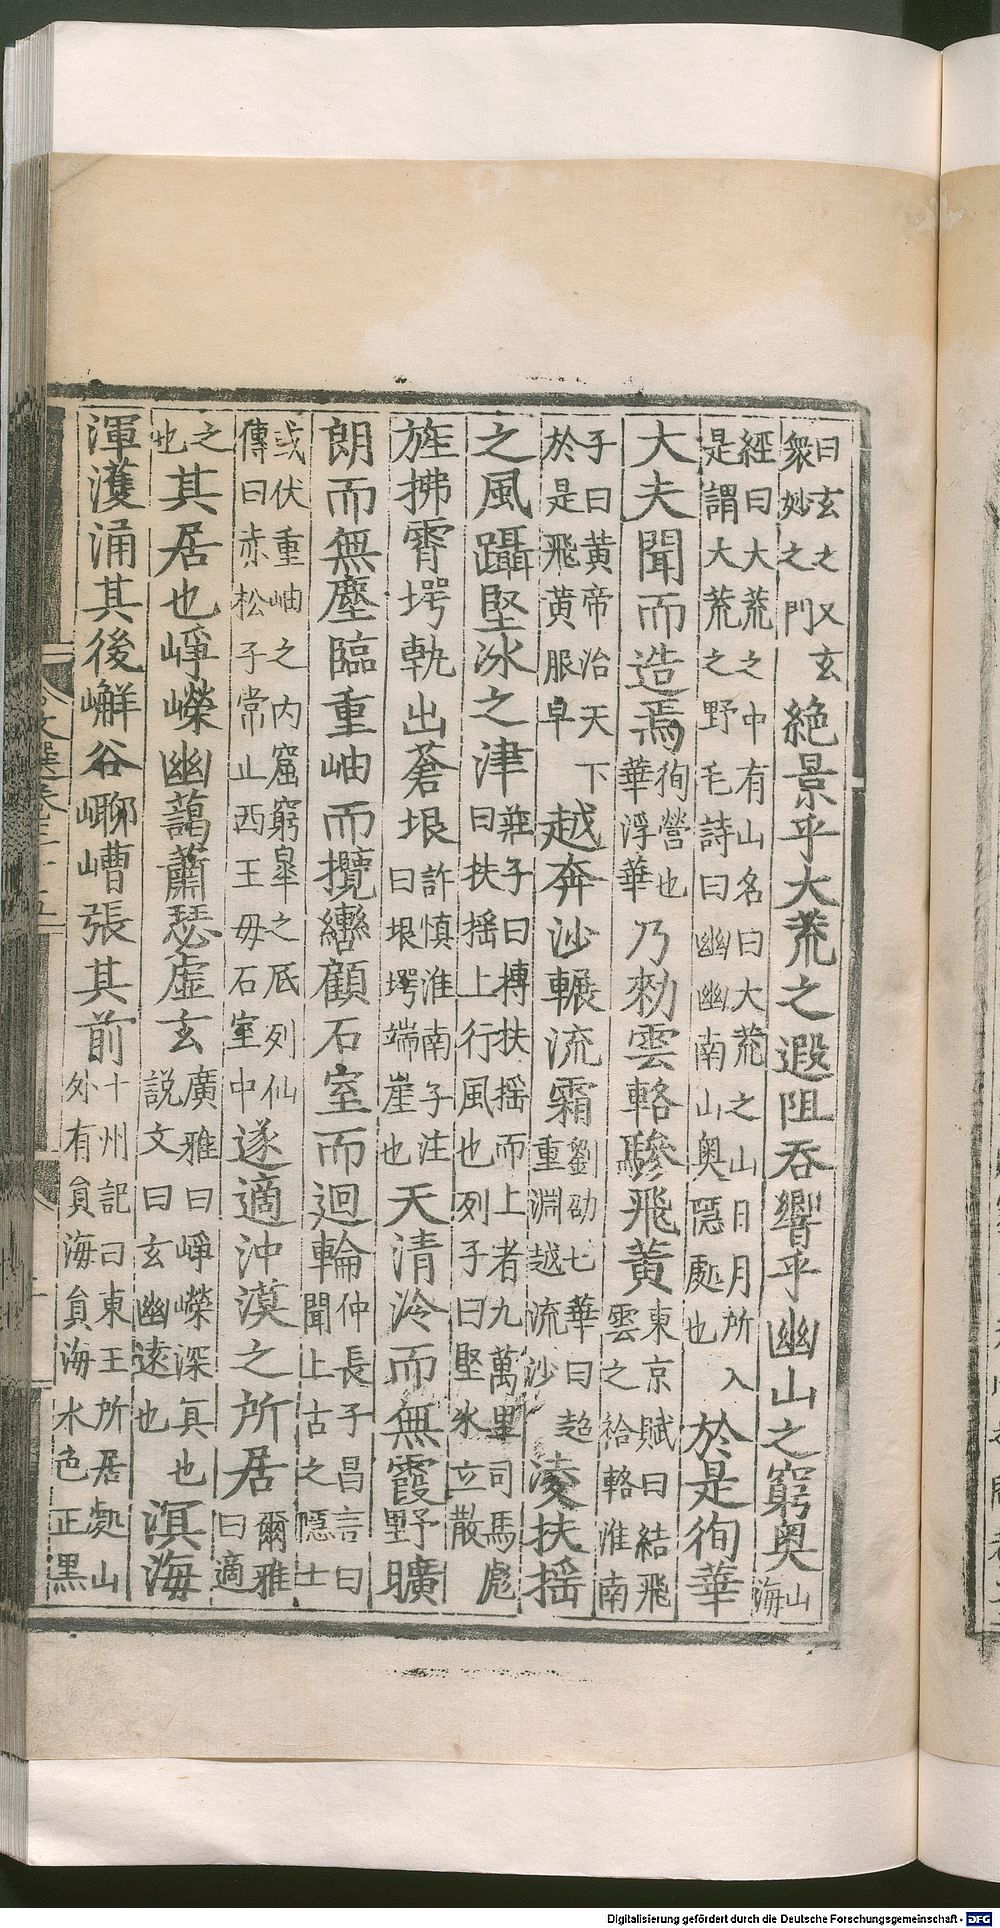 曰玄之又玄衆妙之門絶景乎大荒之遐阻吞響乎幽山之窮奥山海
經曰大荒之中有山名曰大荒之山日月所入是謂大荒之野毛詩曰幽幽南山奥隱處也於是徇華
大夫聞而造焉徇營也華浮華乃勑雲輅驂飛黄東京賦曰結飛雲之袷輅淮南
子曰黄帝治天下於是飛黄服卓越奔沙輾流霜劉劭七華曰超重淵越流沙淩扶摇
之風躡堅冰之津莊子曰摶扶摇而上者九萬里司馬彪曰扶摇上行風也列子曰堅冰立散
旌拂霄堮軌出蒼垠許慎淮南子注曰垠堮端崖也天清泠而無霞野曠
朗而無塵臨重岫而攬轡顧石室而迴輪仲長子昌言曰聞上古之隱士
或伏重岫之内窟窮皐之底列仙傳曰赤松子常止西王母石室中遂適沖漠之所居爾雅曰適
之也其居也崢嶸幽藹蕭瑟虚玄廣雅曰崢嶸深冥也説文曰玄幽逺也溟海
渾濩涌其後嶰谷嶆張其前十州記曰東王所居處山外有員海員海水色正黒
文選卷三十五
Digitalisierung gefördert durch die Deutsche Forschungsgemeinschaft - DFG